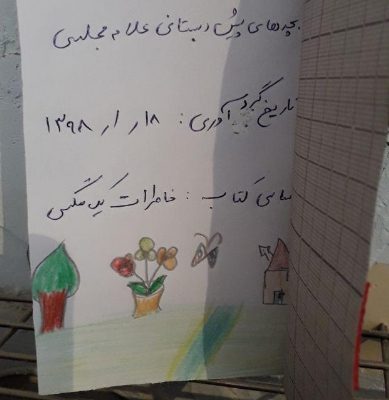 بچه‌های پیش دبستانی علامه مجلسی
تاریخ گردآوری : ۱۸ / ۱ / ۱۳۹۸
کتاب : خاطرات یک مگس